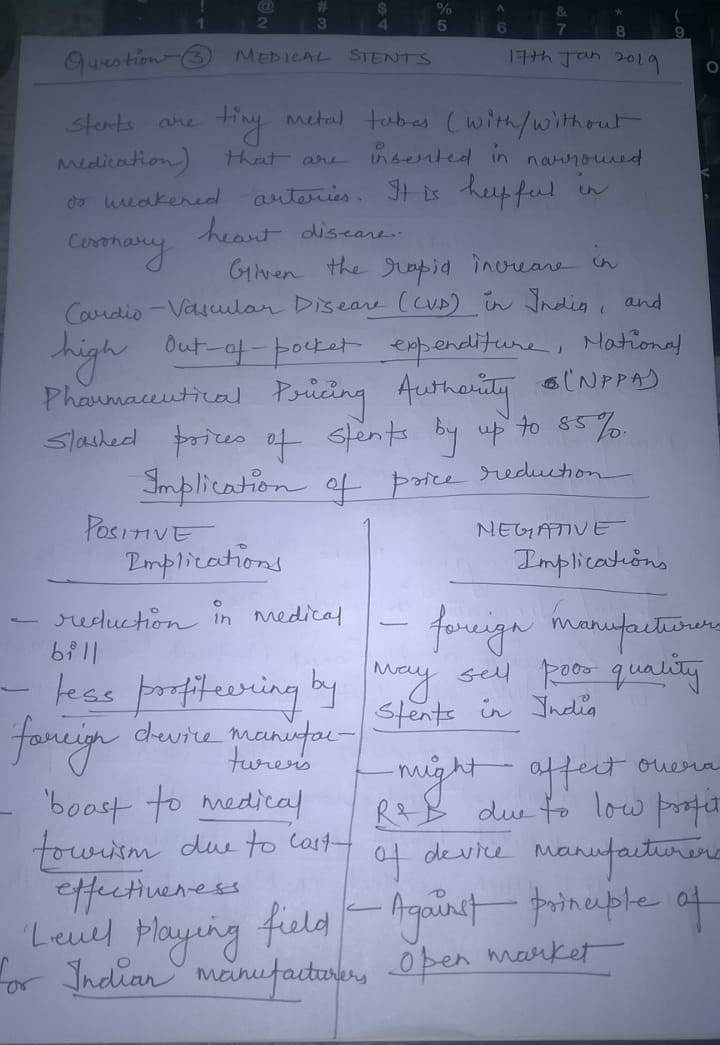 ! @ # $ % ^ & * (
1 2 3 4 5 6 7 8 9
Question-③ MEDICAL STENTS 17th Jan 2019
Stents are tiny metal tubes (with/without
medication) that are inserted in narrowed
or weakened arteries. It is helpful in
coronary heart disease.
Given the rapid increase in
Cardio-Vascular Disease (CVD) in India, and
high out-of-pocket expenditure, National
Pharmaceutical Pricing Authority (NPPA)
slashed prices of stents by up to 85%.
Implication of price reduction
POSITIVE
Implications
- reduction in medical
bill
- less profiteering by
foreign device manufac-
turers
- boast to medical
tourism due to cost-
effectiveness
'Level playing field
for Indian manufacturers
NEGATIVE
Implications
- foreign manufacturers
may sell poor quality
stents in India
- might affect overa
R&D due to low profit
of device manufacturers
- Against principle of
open market